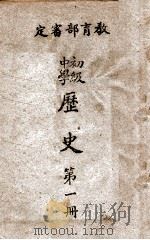 定審部育教
初級
中學
歷史
第一冊